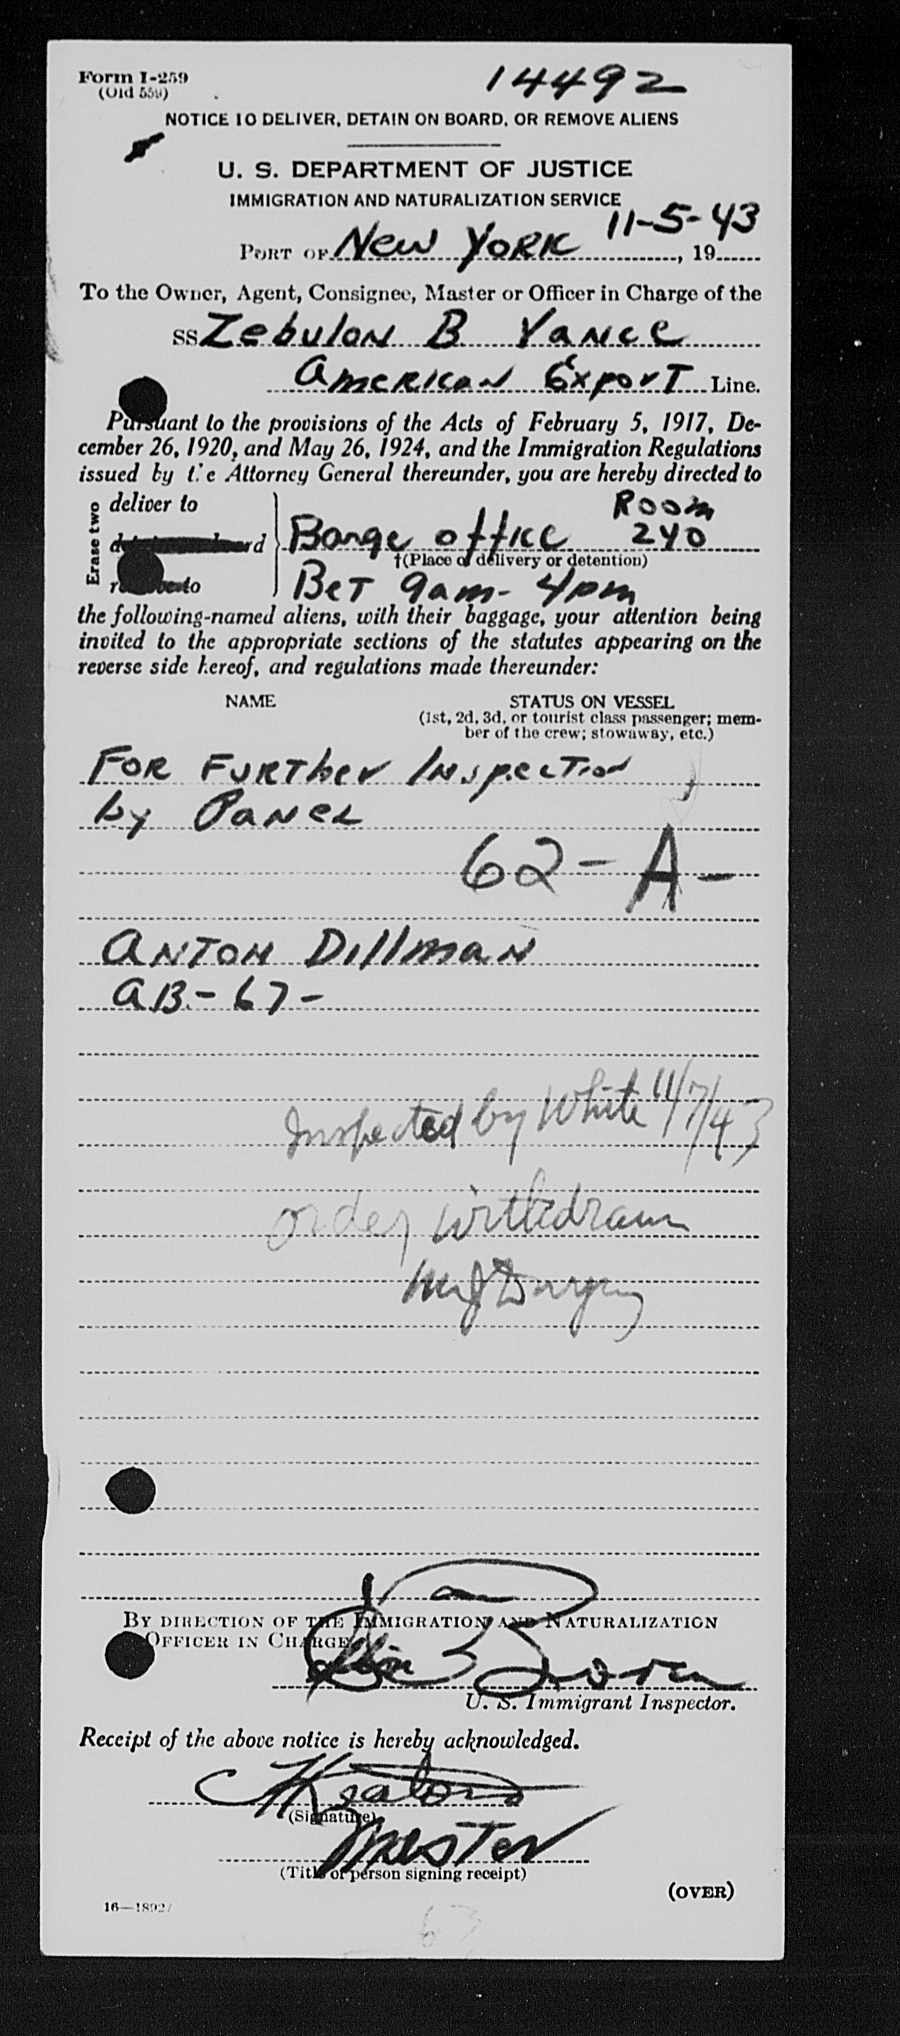 Form I-259
(Old 559)
14492
NOTICE TO DELIVER, DETAIN ON BOARD, OR REMOVE ALIENS
U. S. DEPARTMENT OF JUSTICE
IMMIGRATION AND NATURALIZATION SERVICE
11-5-43
PORT OF New York, 19
To the Owner, Agent, Consignee, Master or Officer in Charge of the
SS Zebulon B Vance
American Export Line.
Pursuant to the provisions of the Acts of February 5, 1917, De-
cember 26, 1920, and May 26, 1924, and the Immigration Regulations
issued by the Attorney General thereunder, you are hereby directed to
Erase two
deliver to
Barge office Room 240
†(Place of delivery or detention)
Bet 9am - 4pm
the following-named aliens, with their baggage, your attention being
invited to the appropriate sections of the statutes appearing on the
reverse side hereof, and regulations made thereunder:
NAME
STATUS ON VESSEL
(1st, 2d, 3d, or tourist class passenger; mem-
ber of the crew; stowaway, etc.)
For Further Inspection
by Panel
62-A-
Anton Dillman
AB-67-
Inspected by White 11/7/43
order withdrawn
BY DIRECTION OF THE IMMIGRATION AND NATURALIZATION
OFFICER IN CHARGE
U. S. Immigrant Inspector.
Receipt of the above notice is hereby acknowledged.
(Signature)
Master
(Title of person signing receipt)
(OVER)
63